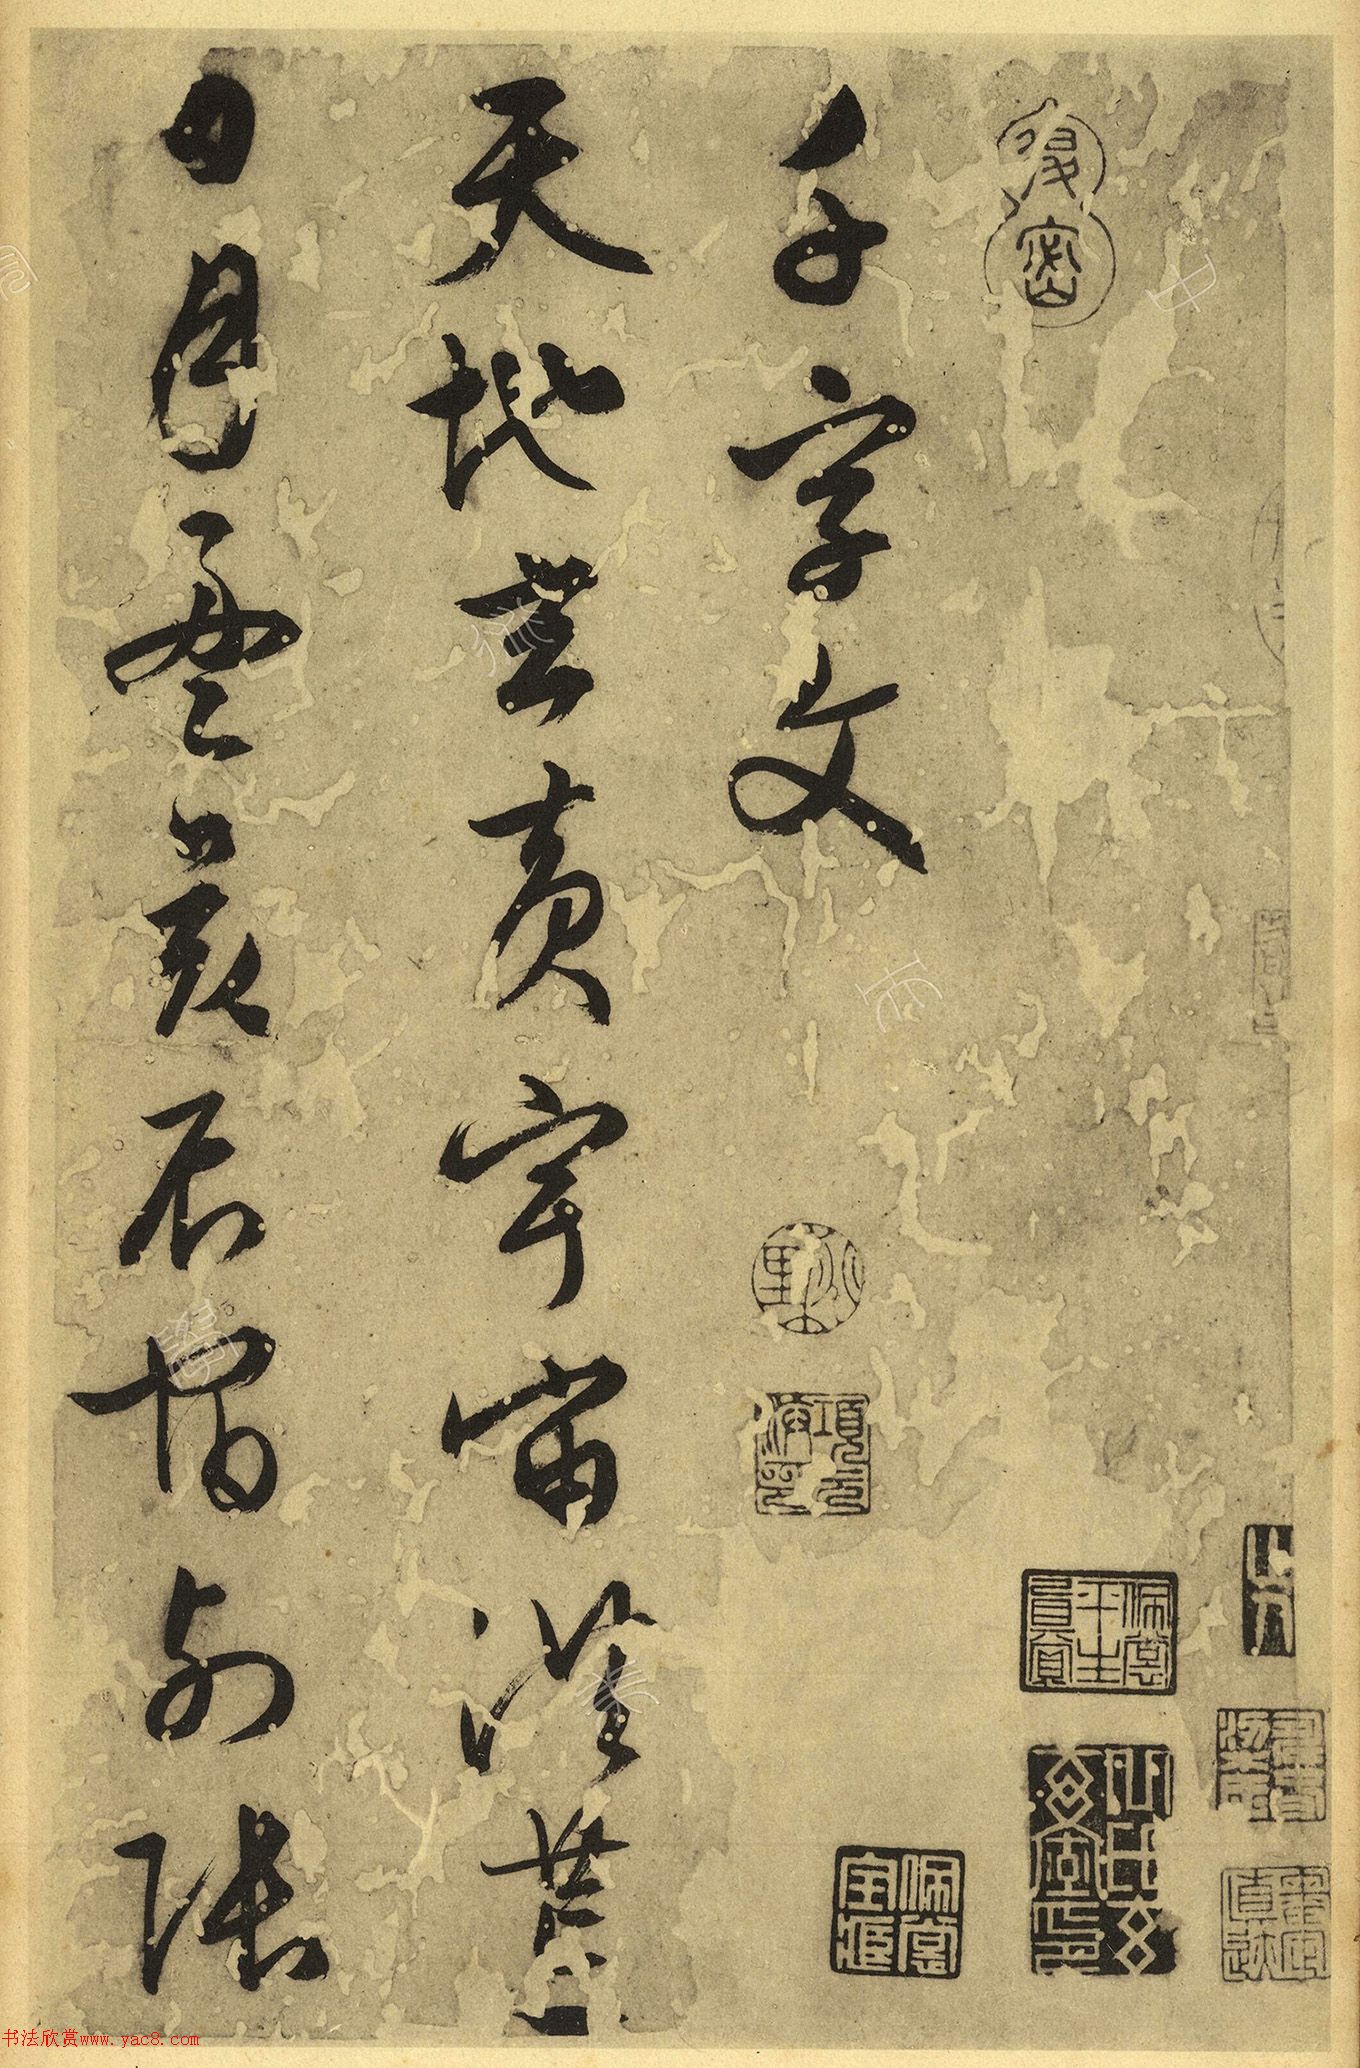 千字文
天地玄黃宇宙洪荒
日月盈昃辰宿列張
平生真賞
书法欣赏www.yac8.com